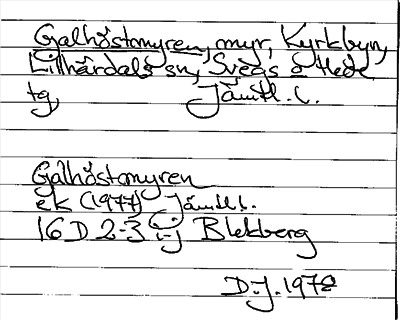 Galhöstmyren, myr, Kyrkbyn,
Lillhärdals sn, Svegs o Hede
tg, Jämtl. l.
Galhöstmyren
ek (1977) Jämtl l.
16D 2-3 i-j Blekberg
D.J. 1978